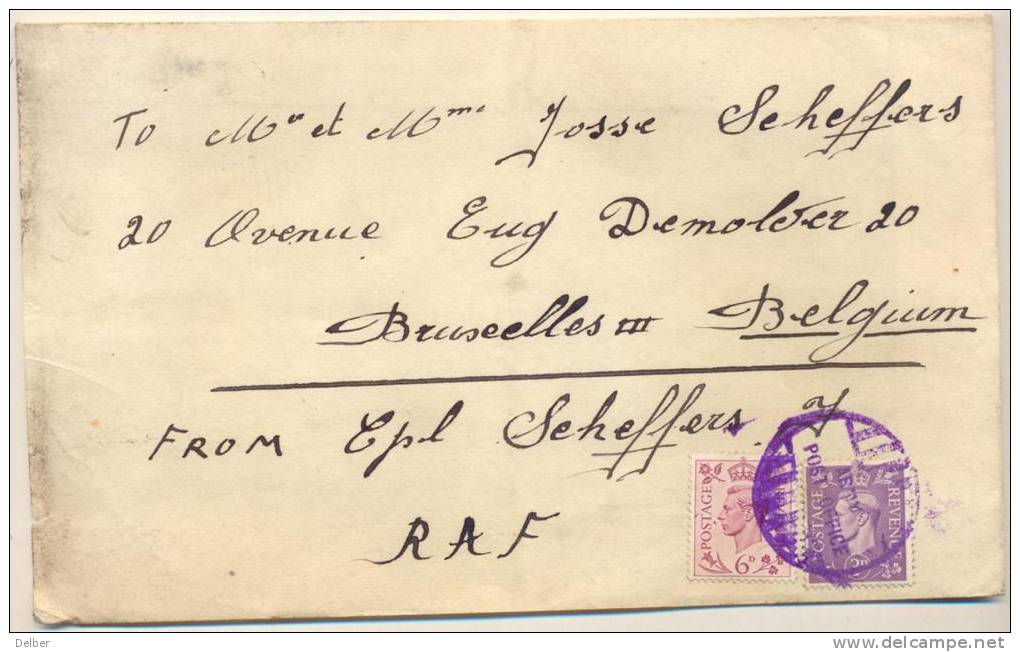 To Mr et Mme Josse Scheffers
20 Avenue Eug Demolder 20
Bruxelles III Belgium
FROM Cpl Scheffers J
RAF
POSTAGE
6D
POSTAGE REVENUE
POST OFFICE
Delber
www.delcampe.net